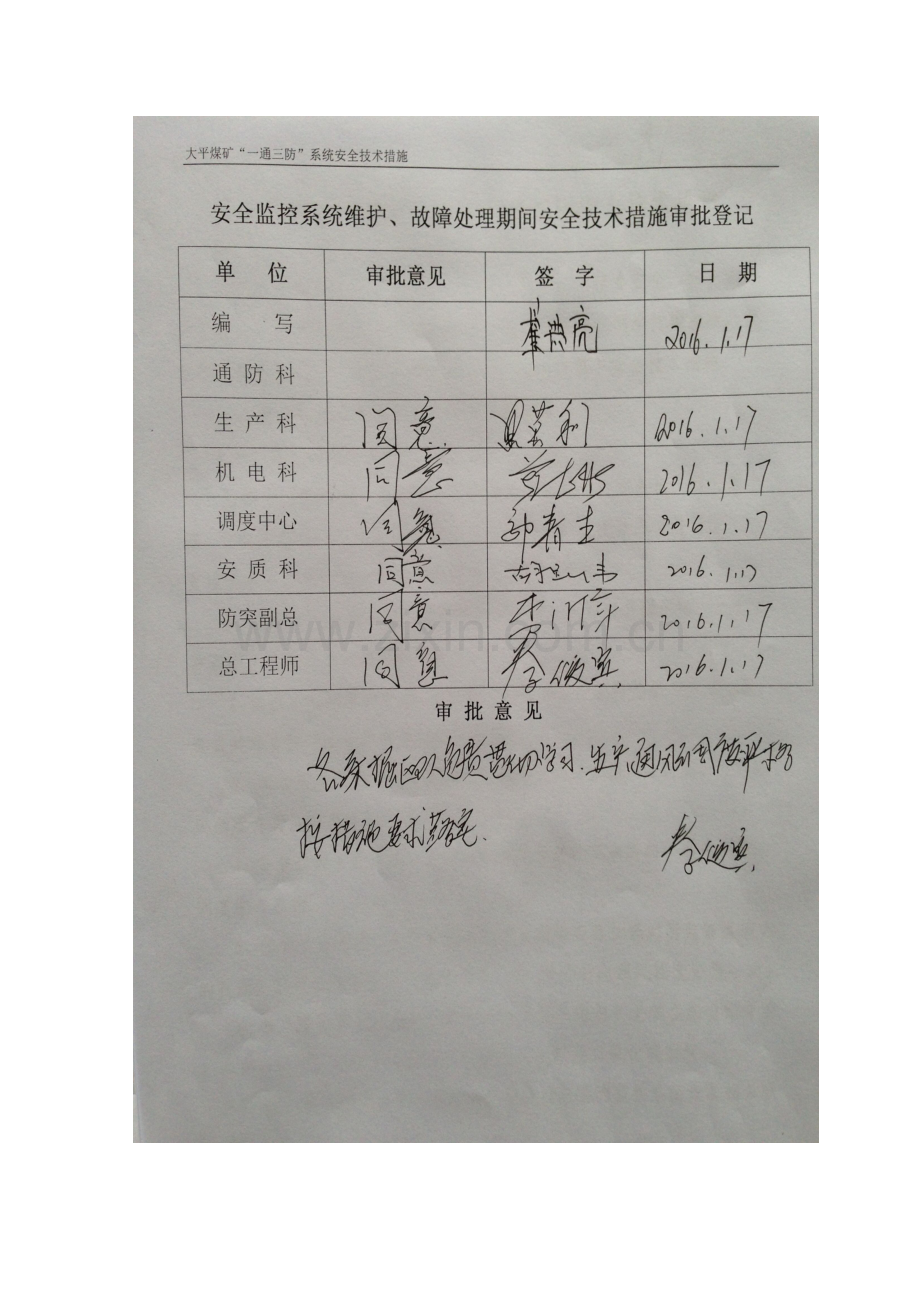 大平煤矿“一通三防”系统安全技术措施
安全监控系统维护、故障处理期间安全技术措施审批登记
单 位 审批意见 签 字 日 期
编 写 2016.1.17
通 防 科
生 产 科 同意 2016.1.17
机 电 科 同意 2016.1.17
调度中心 同意 2016.1.17
安 质 科 同意 2016.1.17
防突副总 同意 2016.1.17
总工程师 同意 李俊宾 2016.1.17
审 批 意 见
学习
按措施要求落实. 李俊宾
www.zixin.com.cn